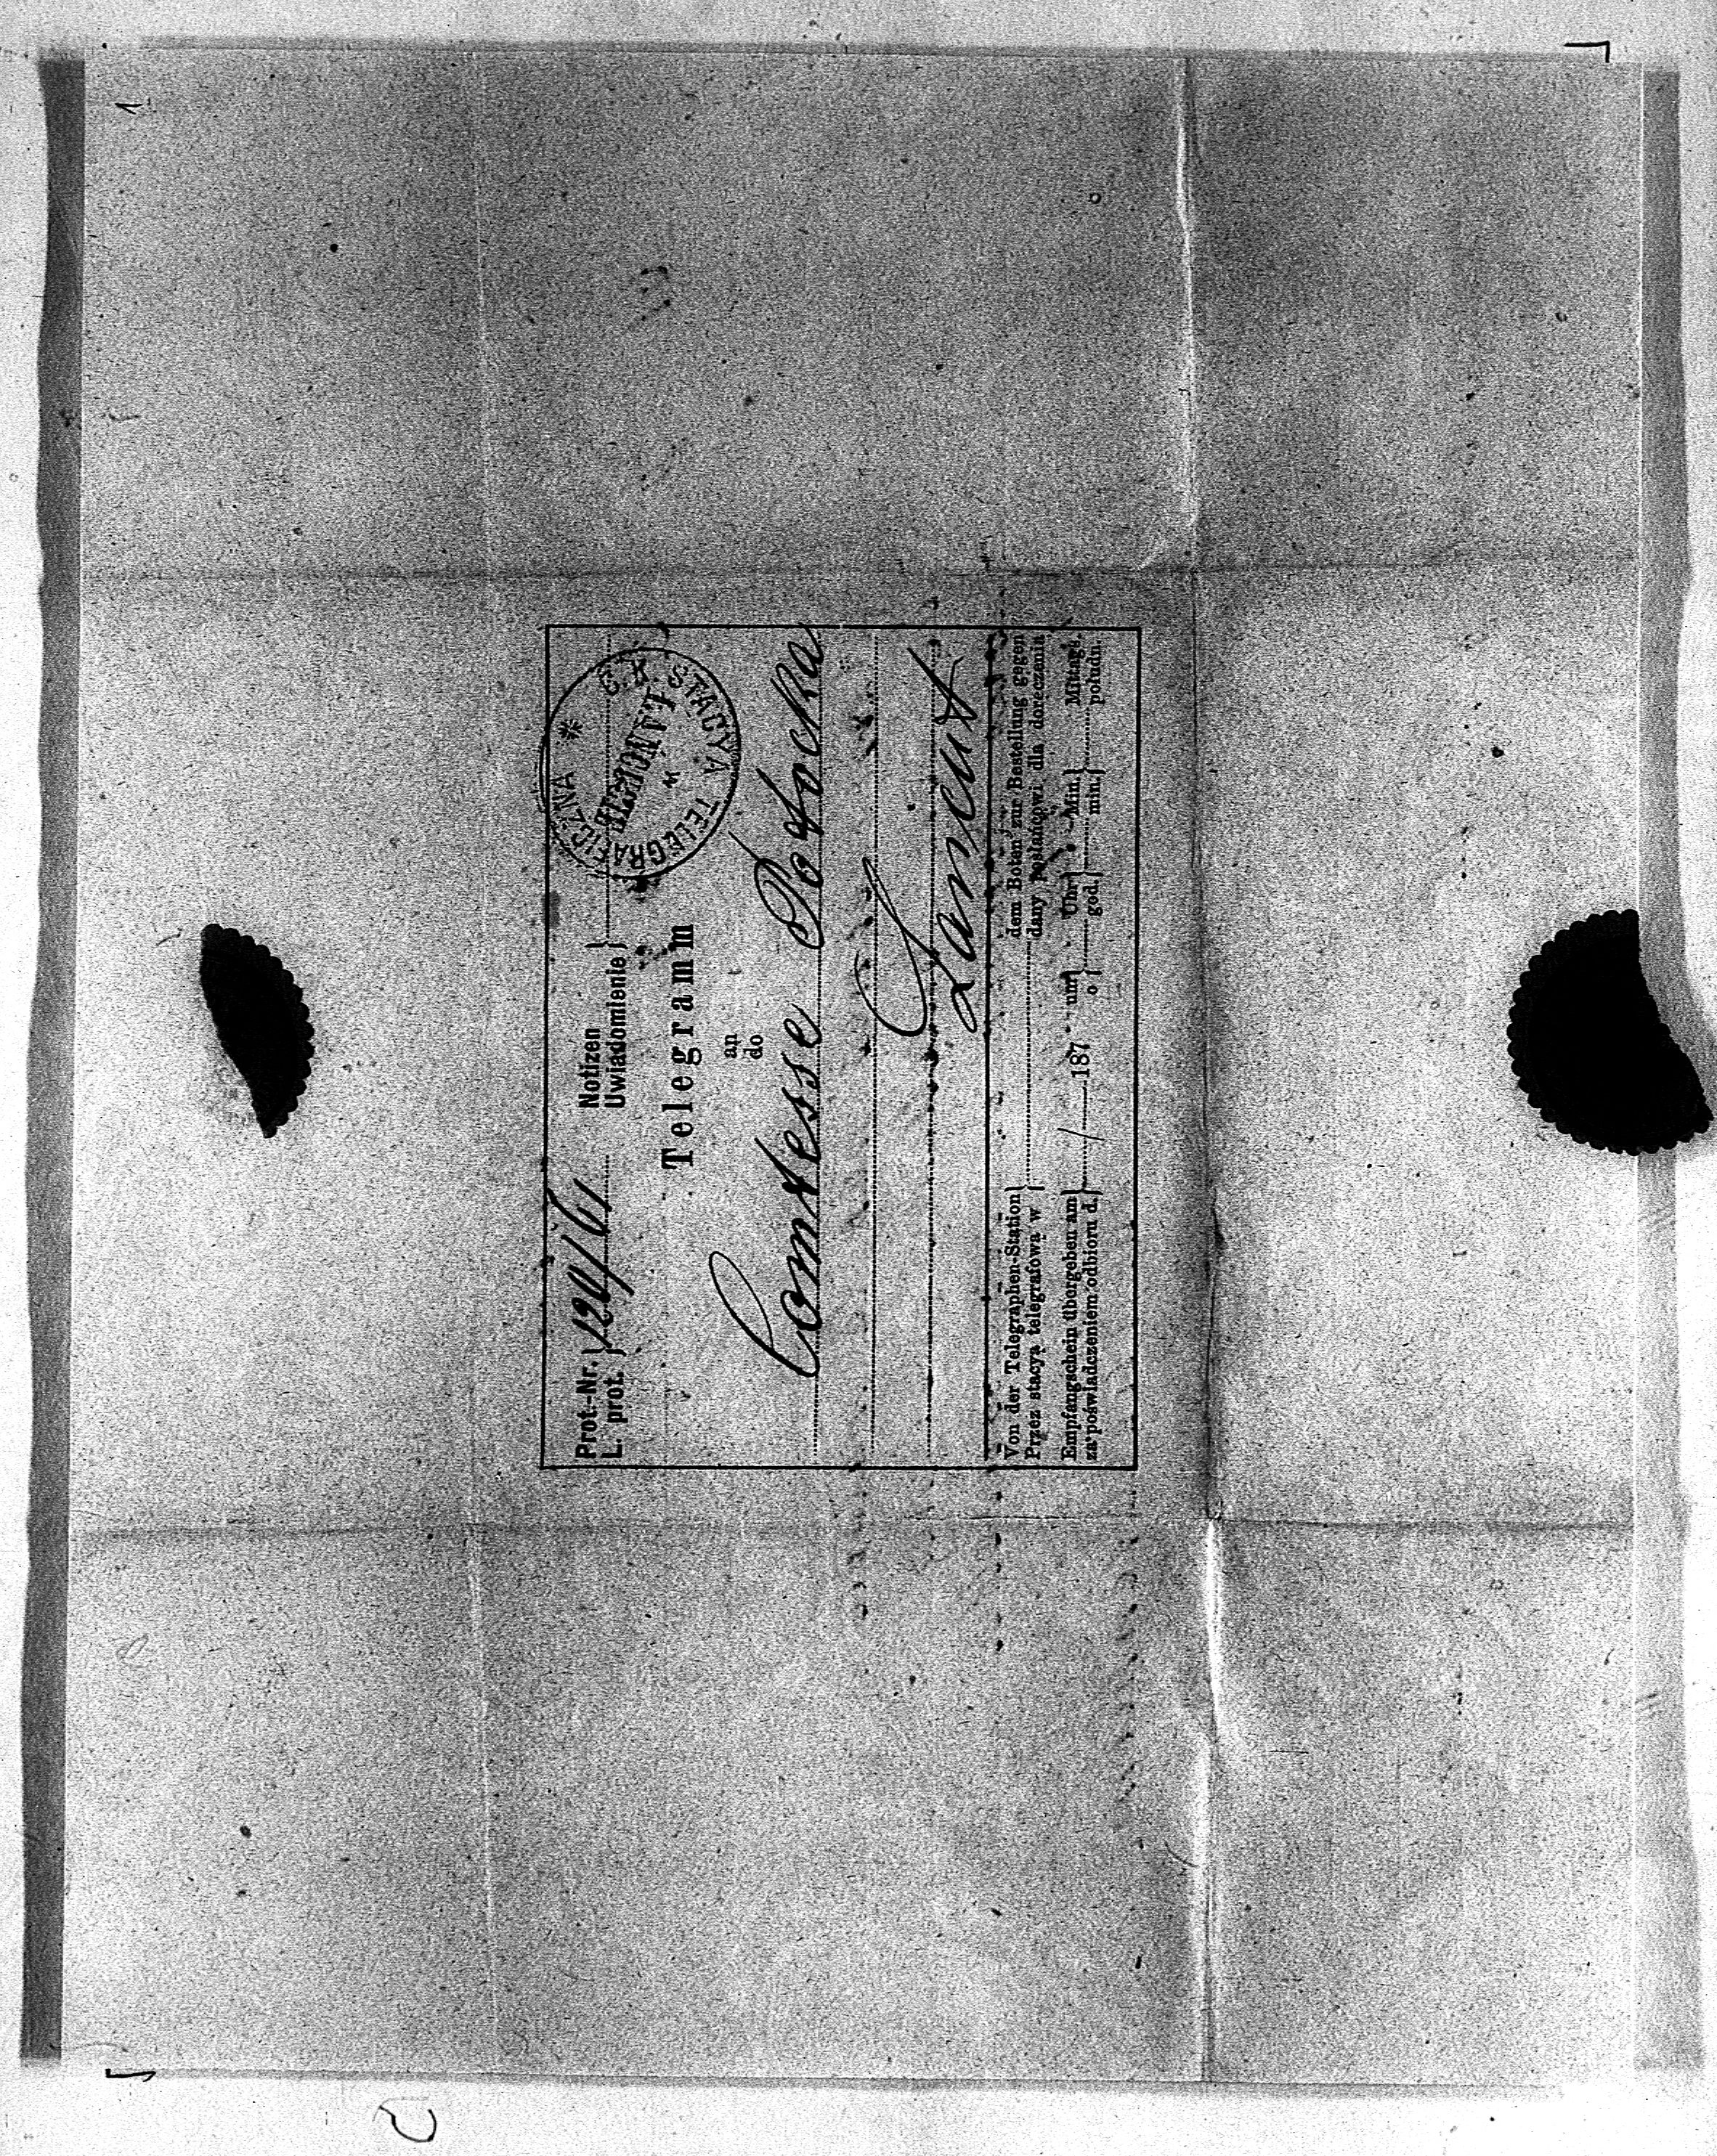 Prot.-Nr. } 120/61 Notizen }
L. prot. } Uwiadomienie }
C. K. STACYA TELEGRAFICZNA
w
Telegramm
an
do
Comtesse Potocka
Lancut
Von der Telegraphen-Station } dem Boten zur Bestellung gegen
Przez stacyą telegrafową w } dany posłańcowi dla doręczenia
Empfangschein übergeben am } / 187 um } Uhr } Min. } Mittag.
za poświadczeniem odbioru d. } o } god. } min. } połudn.